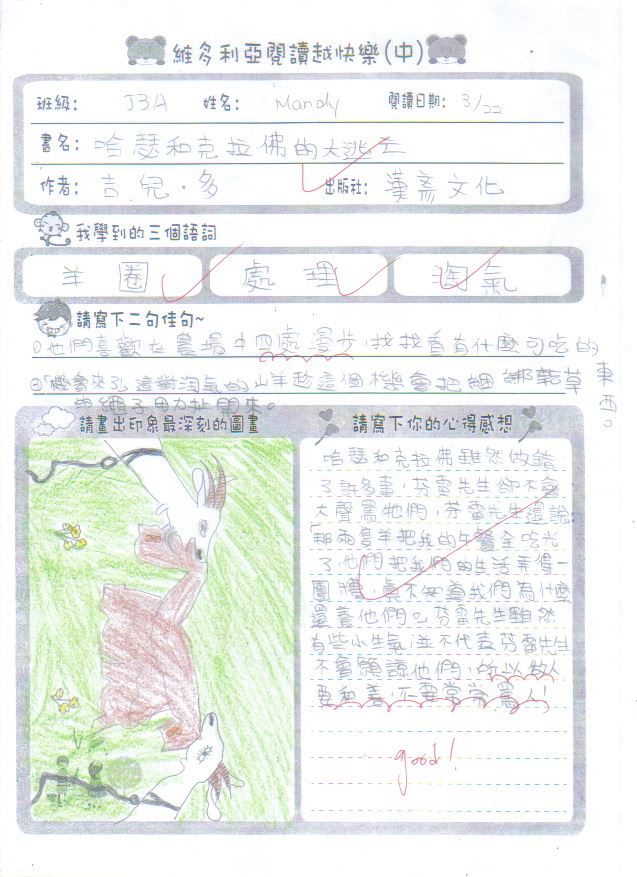 維多利亞閱讀越快樂(中)
班級: J3A 姓名: Mandy 閱讀日期: 3/22
書名: 哈瑟和克拉佛的大逃亡
作者: 吉兒·多 出版社: 漢斋文化
我學到的三個語詞
羊圈 處理 淘氣
請寫下二句佳句~
①他們喜歡在農場中四處漫步,找找看有什麼可吃的東西。
②機會來了,這對淘氣的山羊趁這個機會把綑綁乾草
的繩子用力扯開來。
請畫出印象最深刻的圖畫
請寫下你的心得感想
哈瑟和克拉佛雖然做錯
了許多事,芬雷先生卻不會
大聲罵他們,芬雷先生還說:
「那兩隻羊把我的午餐全吃光
了,他們把我們的生活弄得一
團糟,真不知道我們為什麼
還養他們」芬雷先生雖然
有些小生氣,並不代表芬雷先生
不會願諒他們,所以做人
要和善,不要常常罵人!
good!